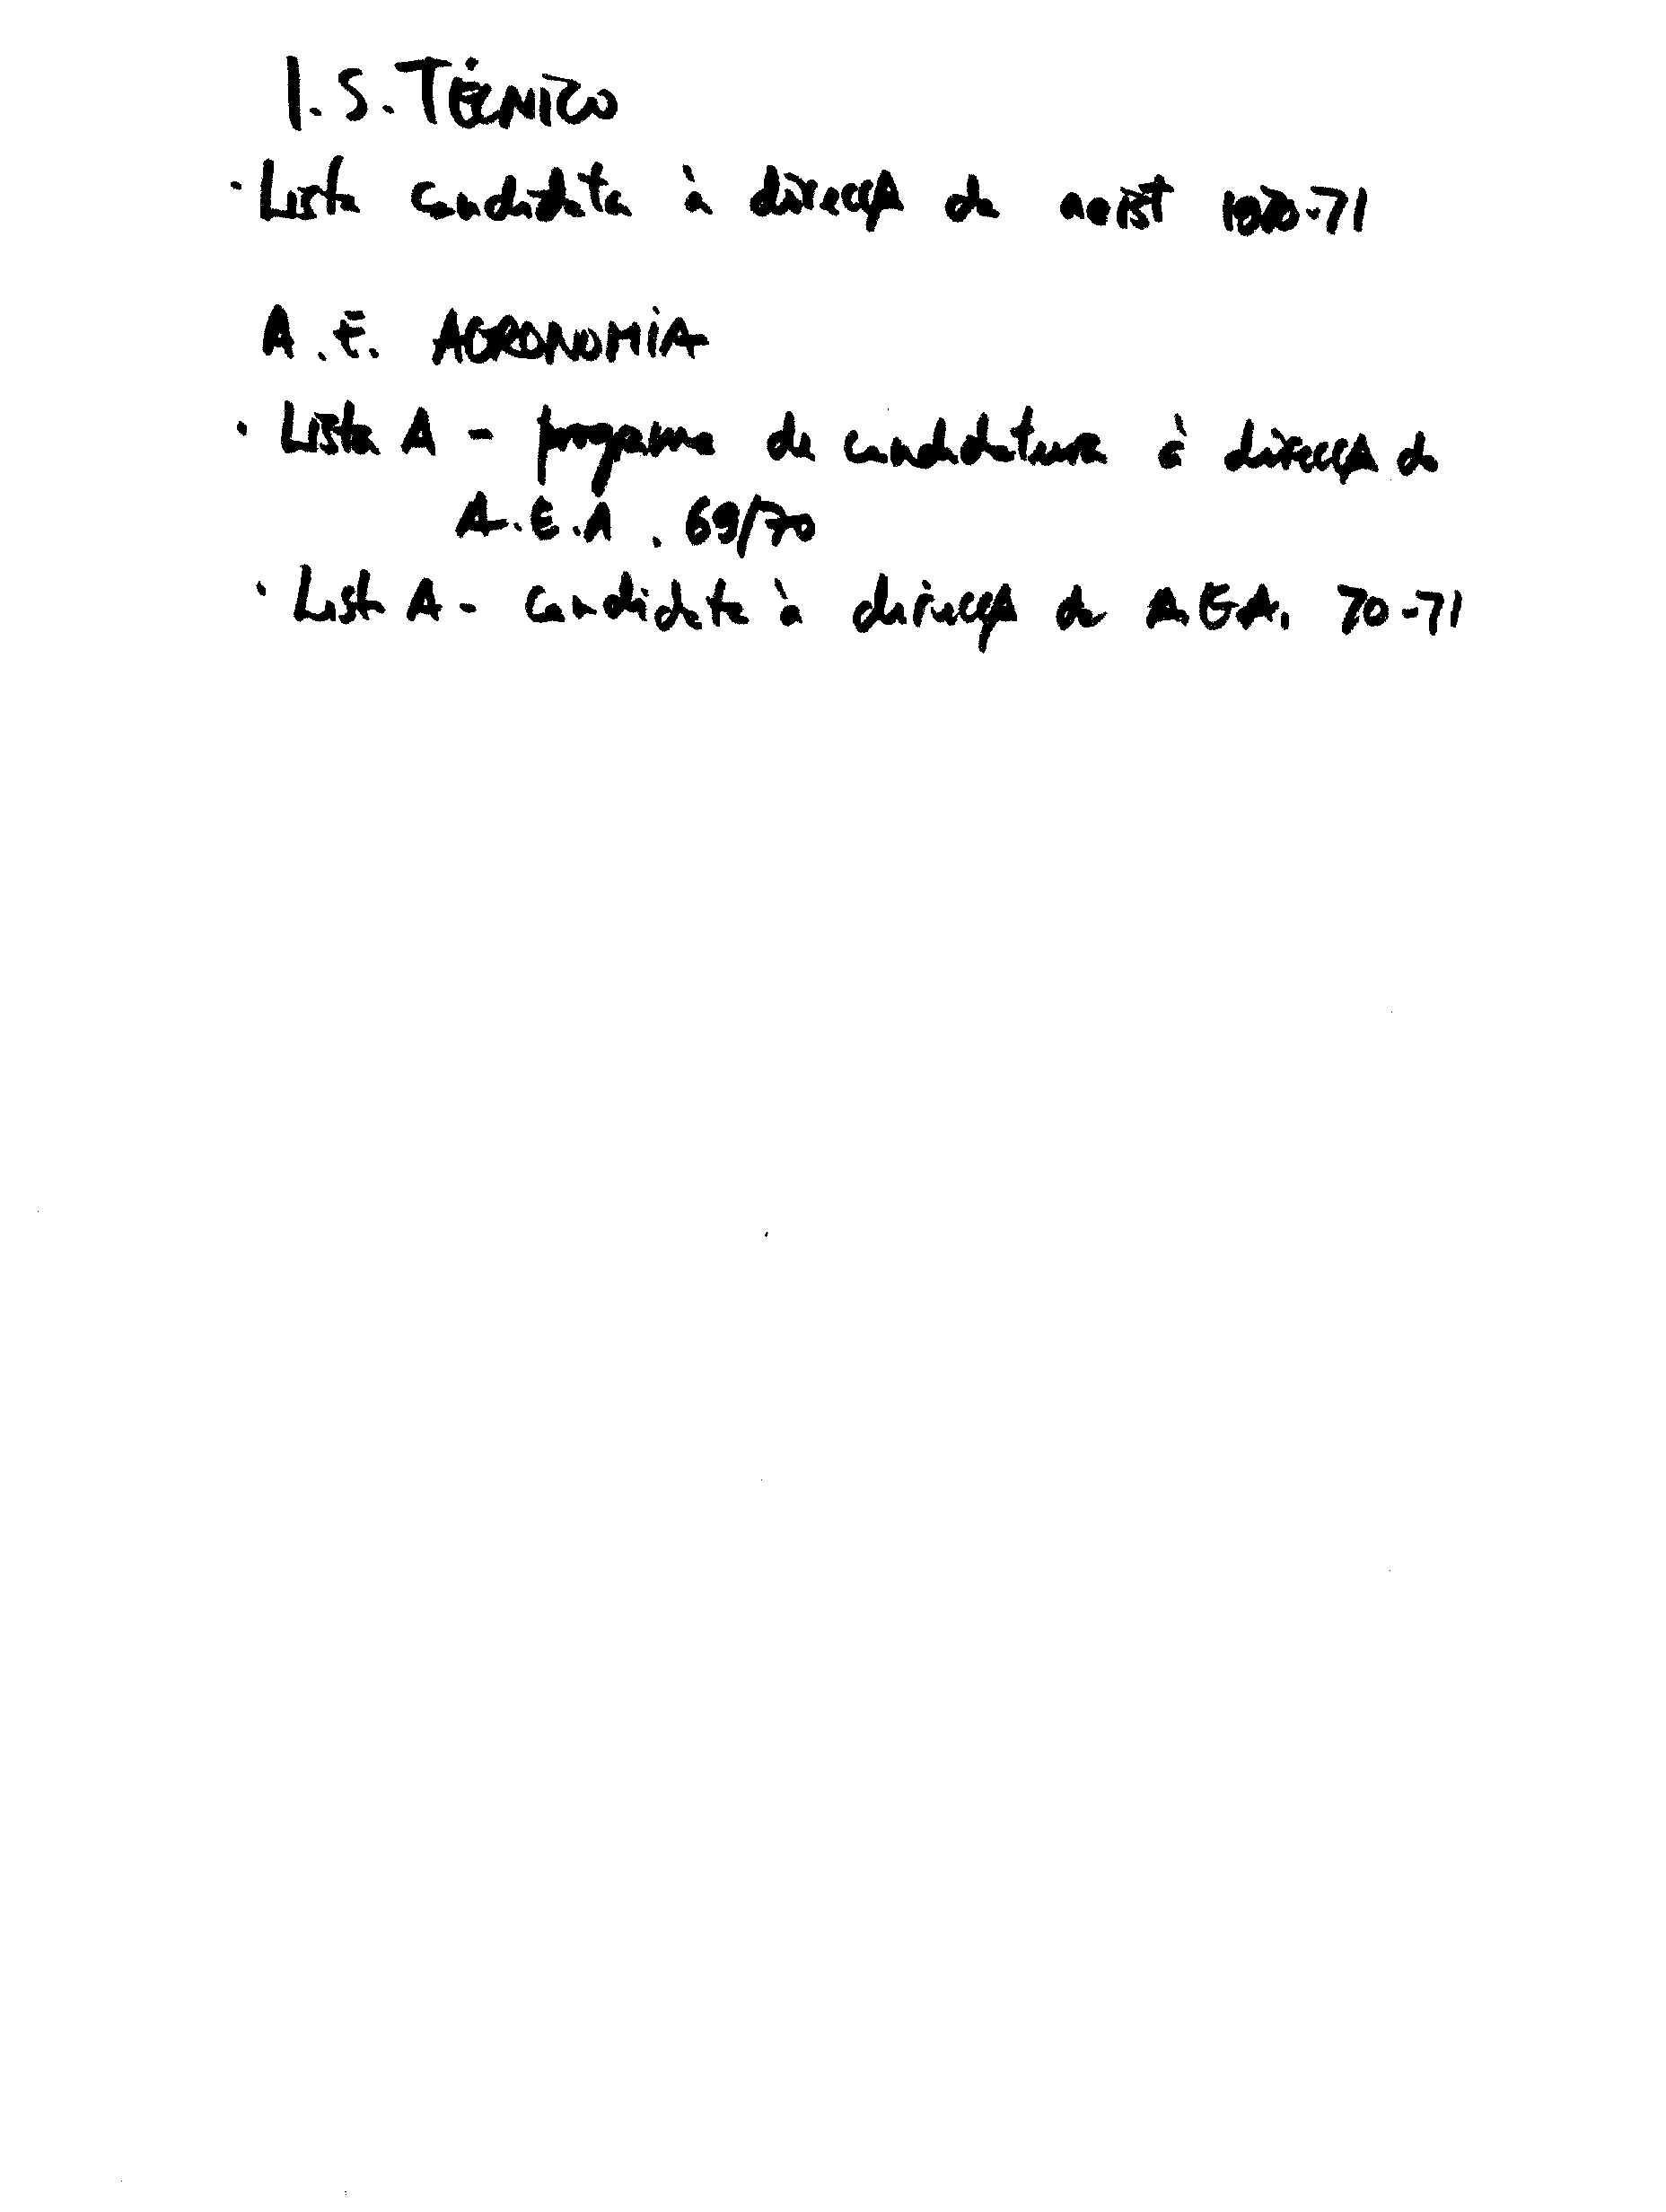 I.S. TÉCNICO
· Lista candidata à direcçã da aeist 1970-71
A.E. AGRONOMIA
· Lista A - programa de candidatura à direcçã da
A.E.A. 69/70
· Lista A - candidata à direcçã da A.E.A. 70-71